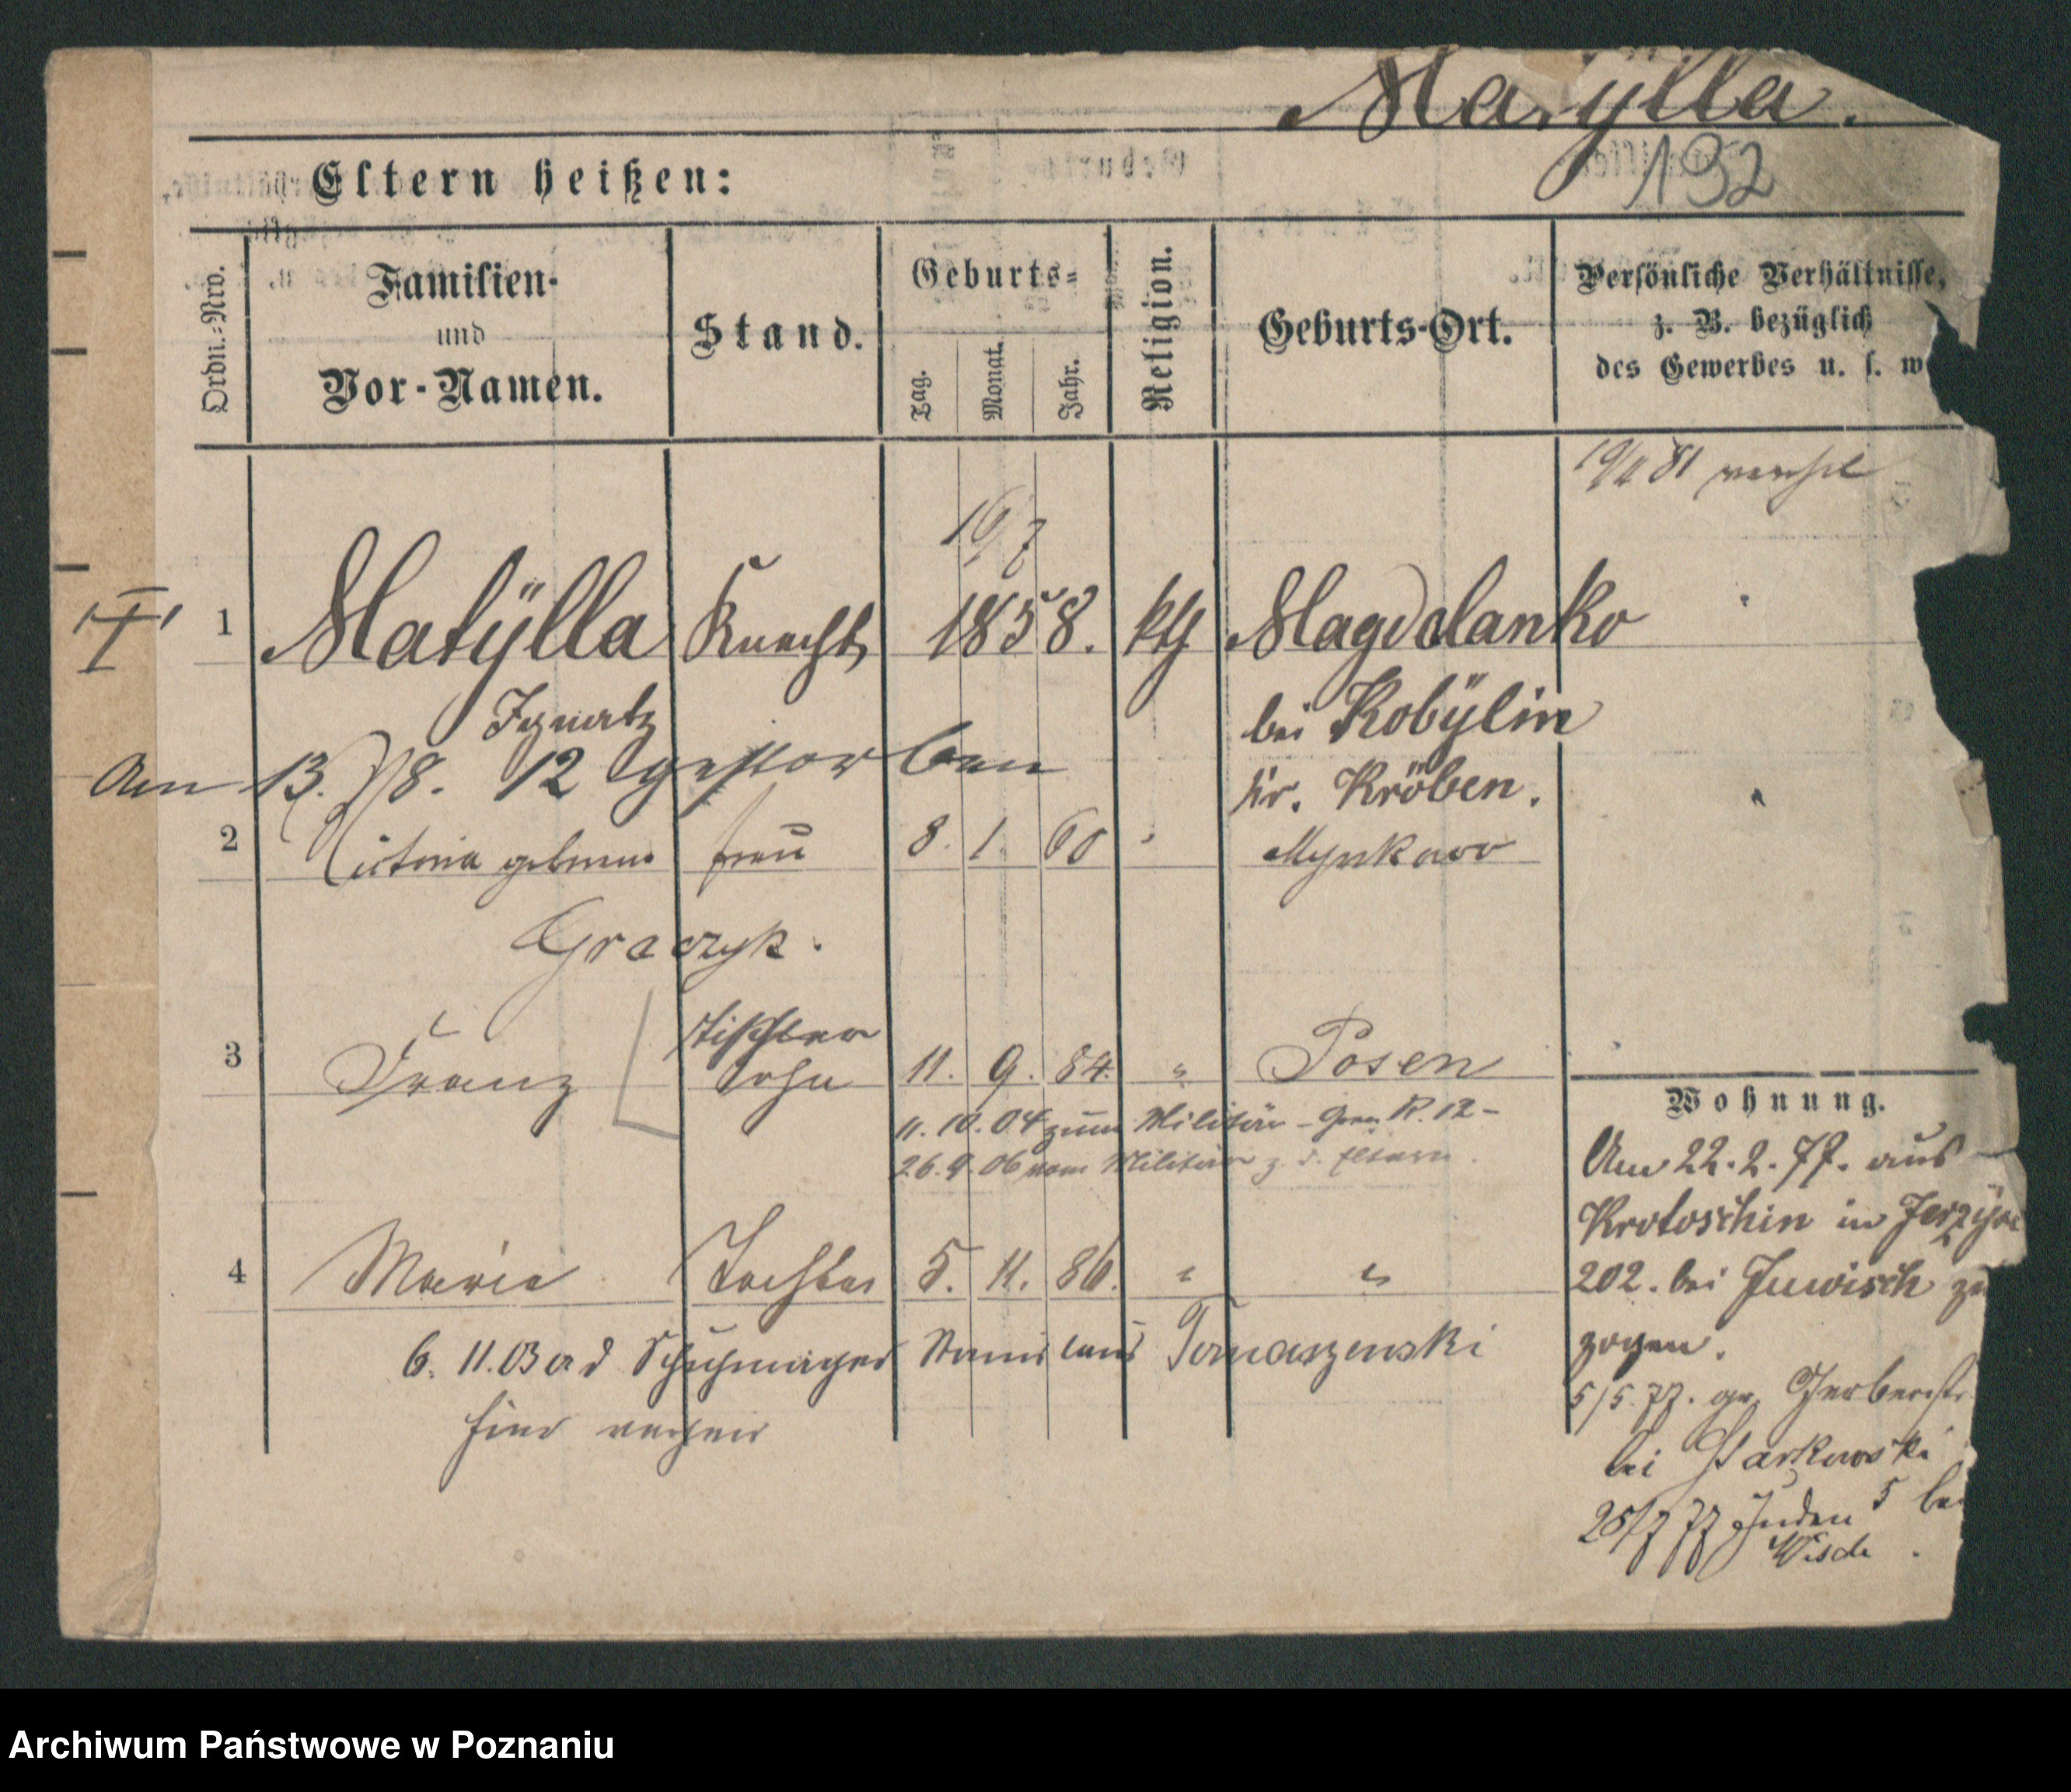 Matylla.
192
Eltern heißen:
Ordn.-Nro.
Familien-
und
Vor-Namen.
Stand.
Geburts-
Tag.
Monat.
Jahr.
Religion.
Geburts-Ort.
Persönliche Verhältnisse,
z. B. bezüglich
des Gewerbes u. s. w
81
16/7
1 Matÿlla Knecht 1858. kth Magdalanko
Ignatz bei Kobÿlin
Am 13. 8. 12 gestorben Kr. Kröben.
2 Victoria geborene Frau 8. 1. 60
Graczyk.
Tischler
3 Franz Sohn 11. 9. 84. " Posen
11. 10. 04 zum Militär - Gren. R. 12 -
26. 9. 06 vom Militär z. d. Eltern.
4 Maria Tochter 5. 11. 86. " "
6. 11. 03 a d Schuhmacher Stanislaus Tomaszewski
hier
Wohnung.
Am 22. 2. 77. aus
Krotoschin in
202. bei Juwisch zu
zogen.
5/5. 77. gr. Gerberstr
bei
25/7 77 Juden 5 bei
Wisch
Archiwum Państwowe w Poznaniu